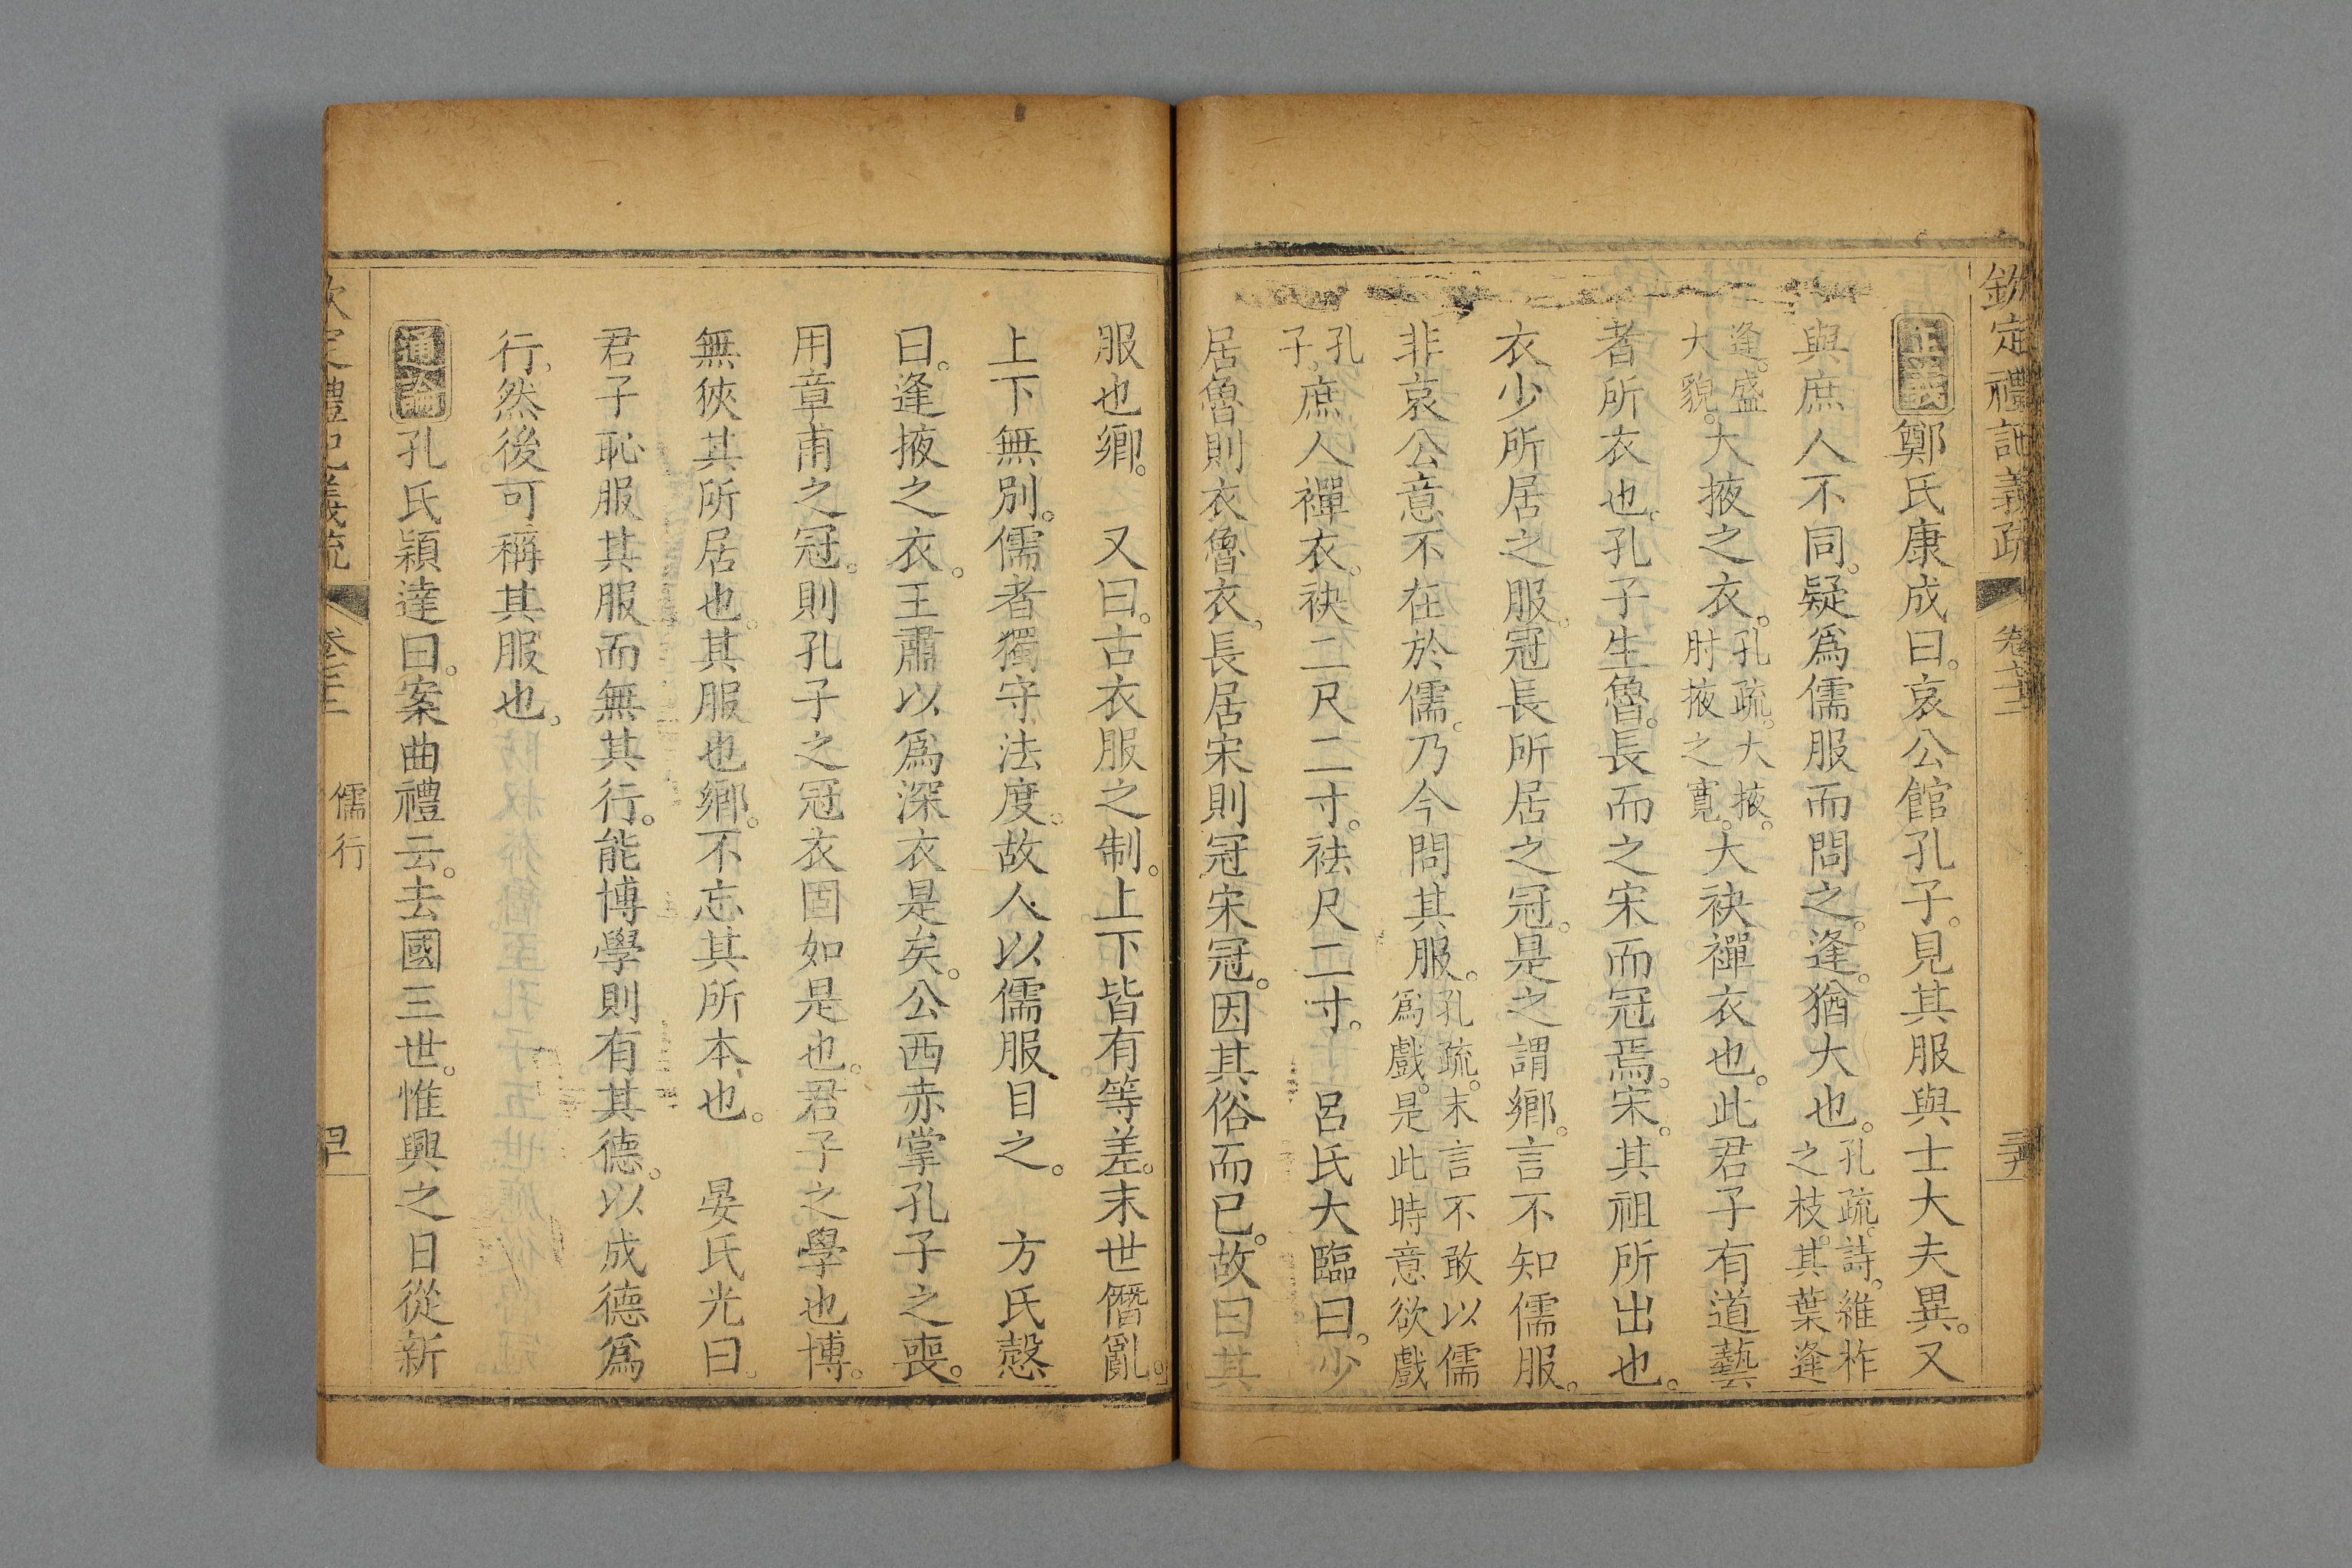 欽定禮記義疏 卷七十二
正義鄭氏康成曰。哀公館孔子。見其服與士大夫異。又
與庶人不同。疑爲儒服而問之。逢。猶大也。孔疏。詩。維柞之枝。其葉逢
逢。盛大貌。大掖之衣。孔疏。大掖。肘掖之寬。大袂禪衣也。此君子有道藝
者所衣也。孔子生魯。長而之宋而冠焉。宋。其祖所出也。
衣少所居之服。冠長所居之冠。是之謂鄉。言不知儒服。
非哀公意不在於儒。乃今問其服。孔疏。末言不敢以儒爲戲。是此時意欲戲
孔子。庶人禪衣。袂二尺二寸。袪尺二寸。 呂氏大臨曰。少
居魯則衣魯衣。長居宋則冠宋冠。因其俗而已。故曰其
服也鄉。 又曰。古衣服之制。上下皆有等差。末世僭亂。
上下無別。儒者獨守法度。故人以儒服目之。 方氏慤
曰。逢掖之衣。王肅以爲深衣是矣。公西赤掌孔子之喪。
用章甫之冠。則孔子之冠衣固如是也。君子之學也博。
無狹其所居也。其服也鄉。不忘其所本也。 晏氏光曰。
君子恥服其服而無其行。能博學則有其德。以成德爲
行。然後可稱其服也。
通論孔氏穎達曰。案曲禮云。去國三世。惟興之日從新
儒行